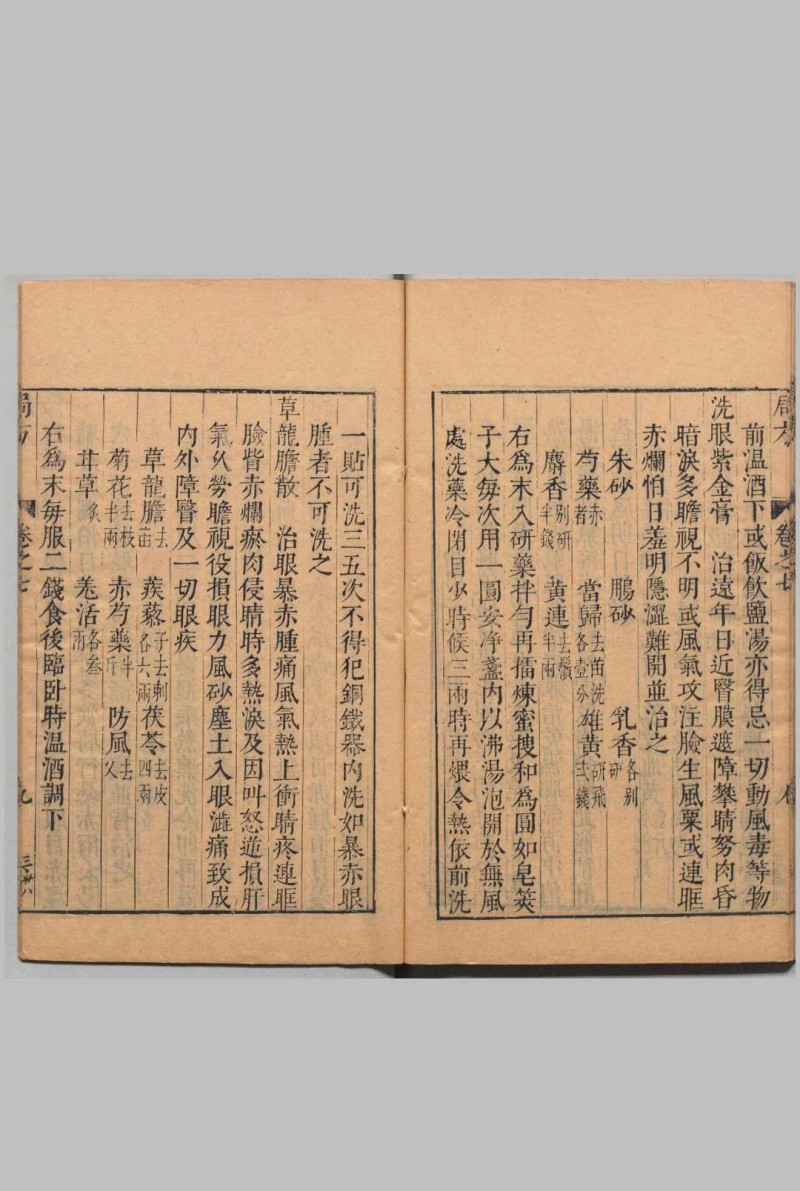 局方
卷之七
前温酒下或飯飲鹽湯亦得忌一切動風毒等物
洗眼紫金膏 治遠年日近瞖膜遮障攀睛努肉昏
暗淚多瞻視不明或風氣攻注臉生風粟或連眶
赤爛怕日羞明隱澀難開並治之
朱砂 鵬砂 乳香各別研
芍藥赤者 當歸去苗洗各壹分 雄黃研飛弍錢
麝香別研半錢 黃連去鬚半兩
右為末入研藥拌勻再擂煉蜜搜和為圓如皂莢
子大每次用一圓安净盞内以沸湯泡開於無風
處洗藥冷閉目少時候三兩時再煨令熱依前洗
一貼可洗三五次不得犯銅鐵器内洗如暴赤眼
腫者不可洗之
草龍膽散 治眼暴赤腫痛風氣熱上衝睛疼連眶
臉眥赤爛瘀肉侵睛時多熱淚及因叫怒逆損肝
氣乆勞瞻視役損眼力風砂塵土入眼澁痛致成
内外障瞖及一切眼疾
草龍膽去苗 蒺藜子去刺各六兩 茯苓去皮四兩
菊花去枝半兩 赤芍藥半斤 防風去乂
甘草炙 羗活各叁兩
右為末每服二錢食後臨卧時温酒調下
局方
卷之七
九